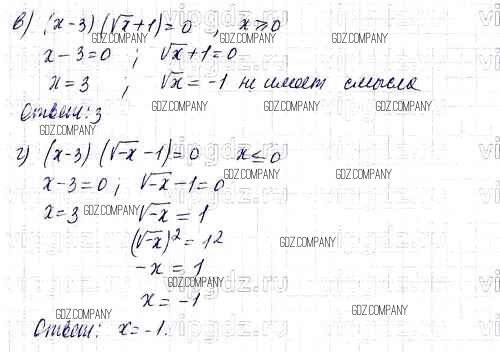 в) (x-3)(√x+1)=0 , x≥0
x-3=0 ; √x+1=0
x=3 ; √x=-1 не имеет смысла
Ответ: 3
г) (x-3)(√-x-1)=0 x≤0
x-3=0; √-x-1=0
x=3 √-x=1
(√-x)²=1²
-x=1
x=-1
Ответ: x=-1.
GDZ.COMPANY
GDZ.COMPANY
GDZ.COMPANY
GDZ.COMPANY
GDZ.COMPANY
GDZ.COMPANY
GDZ.COMPANY
GDZ.COMPANY
GDZ.COMPANY
GDZ.COMPANY
GDZ.COMPANY
GDZ.COMPANY
GDZ.COMPANY
vipgdz.ru